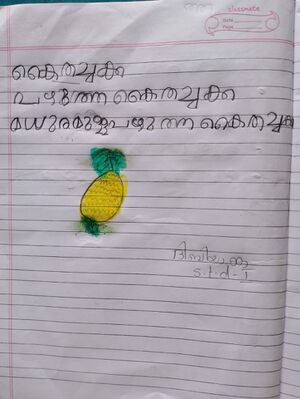 classmate
Date
Page
കൈതച്ചക്ക
പഴുത്ത കൈതച്ചക്ക
മധുരമുള്ള പഴുത്ത കൈതച്ചക്ക
s.t.d-I